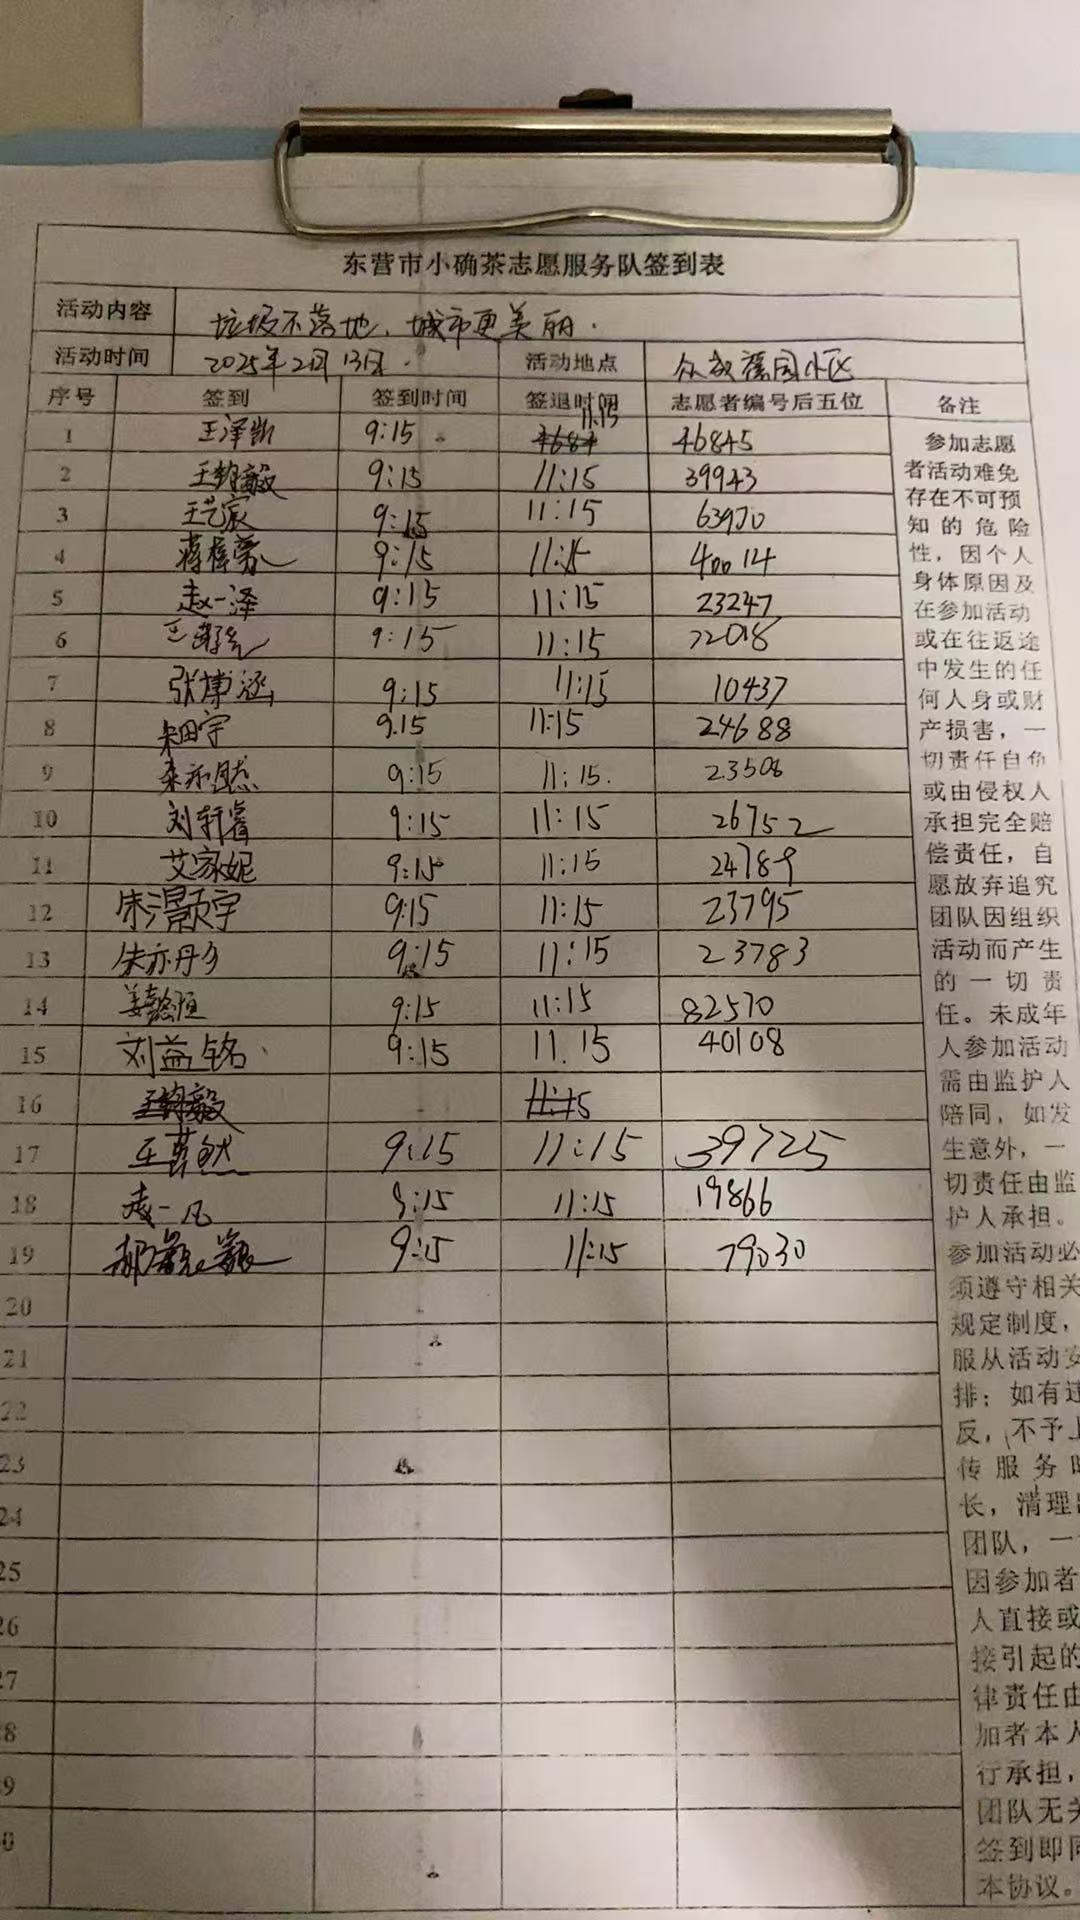 东营市小确茶志愿服务队签到表
活动内容 垃圾不落地，城市更美丽.
活动时间 2025年2月13日. 活动地点 小区
序号 签到 签到时间 签退时间 志愿者编号后五位 备注
1 王泽凯 9:15 11:15 46845
2 王翰毅 9:15 11:15 39943
3 王艺家 9:15 11:15 63970
4 9:15 11:15 40014
5 赵一泽 9:15 11:15 23247
6 王 9:15 11:15 72018
7 张博涵 9:15 11:15 10437
8 朱田宇 9.15 11:15 24688
9 9:15 11:15. 23508
10 刘轩睿 9:15 11:15 26752
11 艾家妮 9:15 11:15 24789
12 朱灏宇 9:15 11:15 23795
13 朱亦丹 9:15 11:15 23783
14 姜懿恒 9:15 11:15 82570
15 刘益铭 9:15 11.15 40108
16 王翰毅 11:15
17 王 9:15 11:15 39725
18 赵一凡 9:15 11:15 19866
19 郝 9:15 11:15 79030
20
21
22
23
24
25
26
27
28
29
30
参加志愿
者活动难免
存在不可预
知的危险
性，因个人
身体原因及
在参加活动
或在往返途
中发生的任
何人身或财
产损害，一
切责任自负
或由侵权人
承担完全赔
偿责任，自
愿放弃追究
团队因组织
活动而产生
的一切责
任。未成年
人参加活动
需由监护人
陪同，如发
生意外，一
切责任由监
护人承担。
参加活动必
须遵守相关
规定制度，
服从活动安
排；如有违
反，不予上
传服务时
长，清理出
团队，一
因参加者
人直接或
接引起的
律责任由
加者本人
行承担，
团队无关
签到即同
本协议。